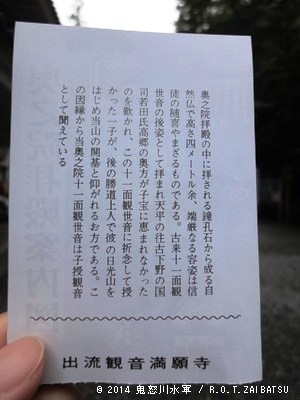 奥之院拝殿の中に拝される鐘乳石から成る自
然仏で高さ四メートル余、端厳なる容姿は信
徒の随喜やまざるものである。古来十一面観
世音の後姿として拝まれ天平の往古下野の国
司若田氏高郷の奥方が子宝に恵まれなかった
のを歎かれ、この十一面観世音に祈念して授
かった一子が、後の勝道上人で彼の日光山を
はじめ当山の開基と仰がれるお方である。こ
の因縁から当奥之院十一面観世音は子授観音
として聞えている
出流観音満願寺
© 2014 鬼怒川水軍 / R.O.T.ZAIBATSU